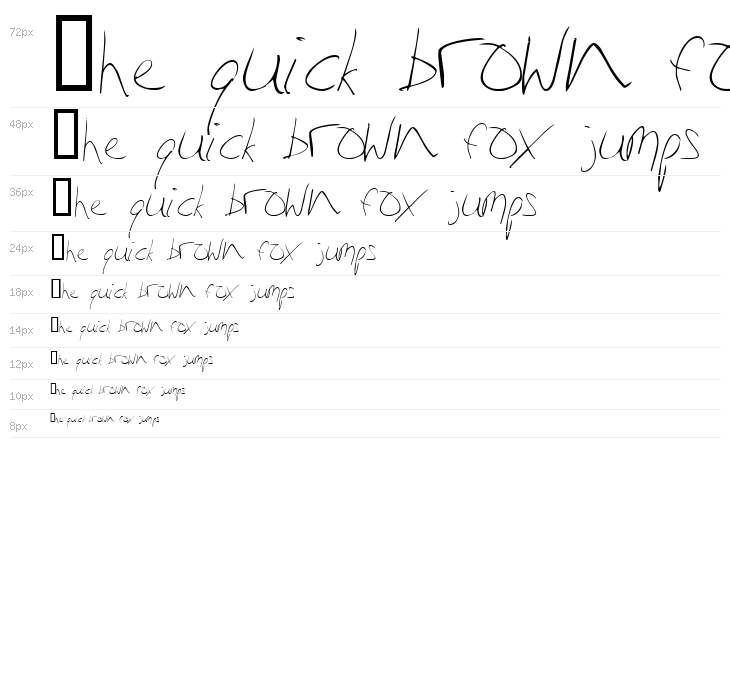 72px ▯he quick brown fo
48px ▯he quick brown fox jumps
36px ▯he quick brown fox jumps
24px ▯he quick brown fox jumps
18px ▯he quick brown fox jumps
14px ▯he quick brown fox jumps
12px ▯he quick brown fox jumps
10px ▯he quick brown fox jumps
8px ▯he quick brown fox jumps